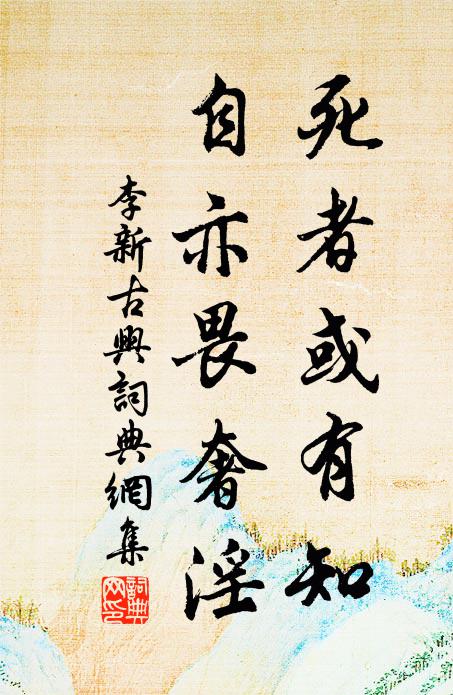 死者或有知
自亦畏奢淫
李新古興詞典網集
詞典網印